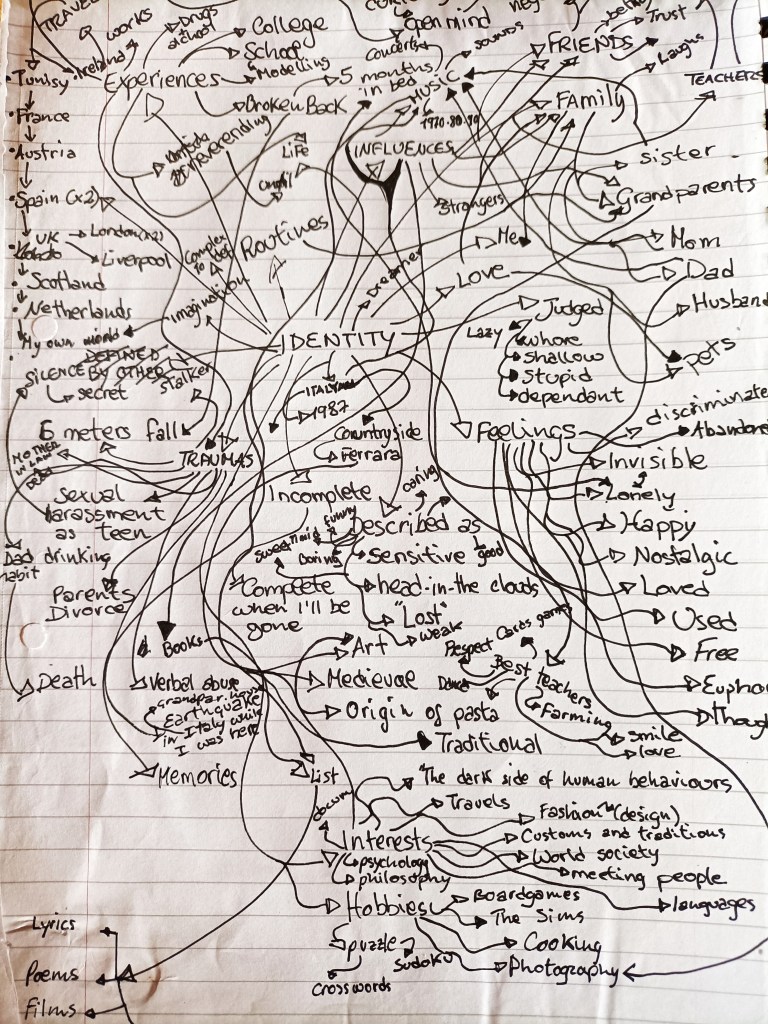 TRAVEL
works
Ireland
Drugs
School
College
School
Modelling
Experiences
5 months
in bed
Broken Back
neverending
Open mind
Concerts
sounds
MUSIC
1970.80.90
INFLUENCES
FRIENDS
Trust
Laughs
FAMILY
TEACHERS
sister
Grandparents
Strangers
Mom
Dad
Husband
pets
Tunisy
France
Austria
Spain (x2)
UK
London (x2)
Liverpool
Scotland
Netherlands
My own world
Life
Routines
Complex
to def
Imagination
Dreamer
Me
Love
IDENTITY
Judged
Lazy
whore
shallow
stupid
dependant
DEFINED
SILENCE BY OTHER
secret
Stalker
ITALYAN
1987
Countryside
Ferrara
6 meters fall
MOTHER
IN LAW
DEBT
TRAUMAS
Sexual
harassment
as teen
Dad drinking
habit
Parents
Divorce
Death
Feelings
discriminate
Abandone
Invisible
Lonely
Happy
Nostalgic
Loved
Used
Free
Euphor
Though
Incomplete
caring
Described as
Sweet
funny
Boring
sensitive
good
head-in-the clouds
"Lost"
weak
Complete
when I'll be
gone
Books
Art
Medievae
Origin of pasta
Traditional
Respect
Cards games
Best teachers
Dance
Farming
smile
love
Verbal abuse
grandpar. house
Earthquake
in Italy while
I was here
Memories
List
docum
"The dark side of human behaviours
Travels
Fashion (design)
Interests
Customs and traditions
psychology
World society
philosophy
meeting people
languages
Hobbies
Boardgames
The Sims
puzzle
Cooking
Sudoku
Photography
Crosswords
Lyrics
Poems
Films